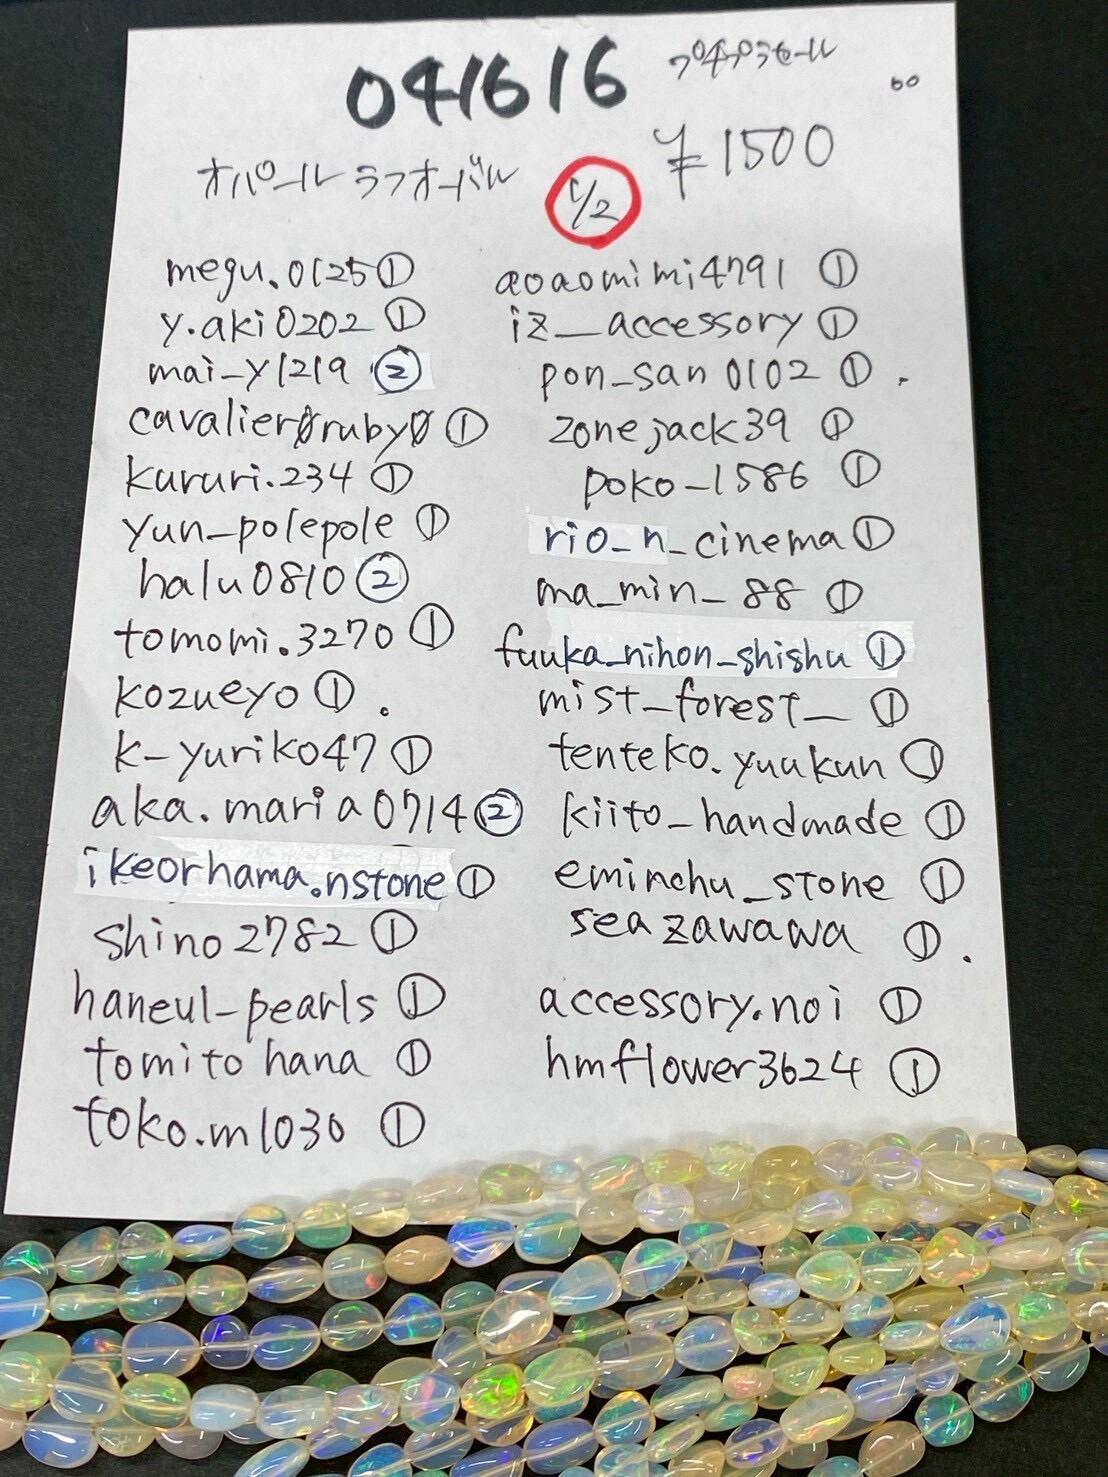 041616 プチプラセール
60
オパール ラフオーバル 1/2 ¥1500
megu.0125①
y.aki0202①
mai_y1219②
cavalier0ruby0①
kururi.234①
yun_polepole①
halu0810②
tomomi.3270①
kozueyo①.
k_yuriko47①
aka.maria0714②
ikeorhama.nstone①
shino2782①
haneul_pearls①
tomitohana①
toko.m1030①
aoaomimi4791①
iz__accessory①
pon_san0102①.
zonejack39①
poko_1586①
rio_n_cinema①
ma_min_88①
fuuka_nihon_shishu①
mist_forest_①
tenteko.yuukun①
kiito_handmade①
eminchu_stone①
seazawawa①.
accessory.noi①
hmflower3624①